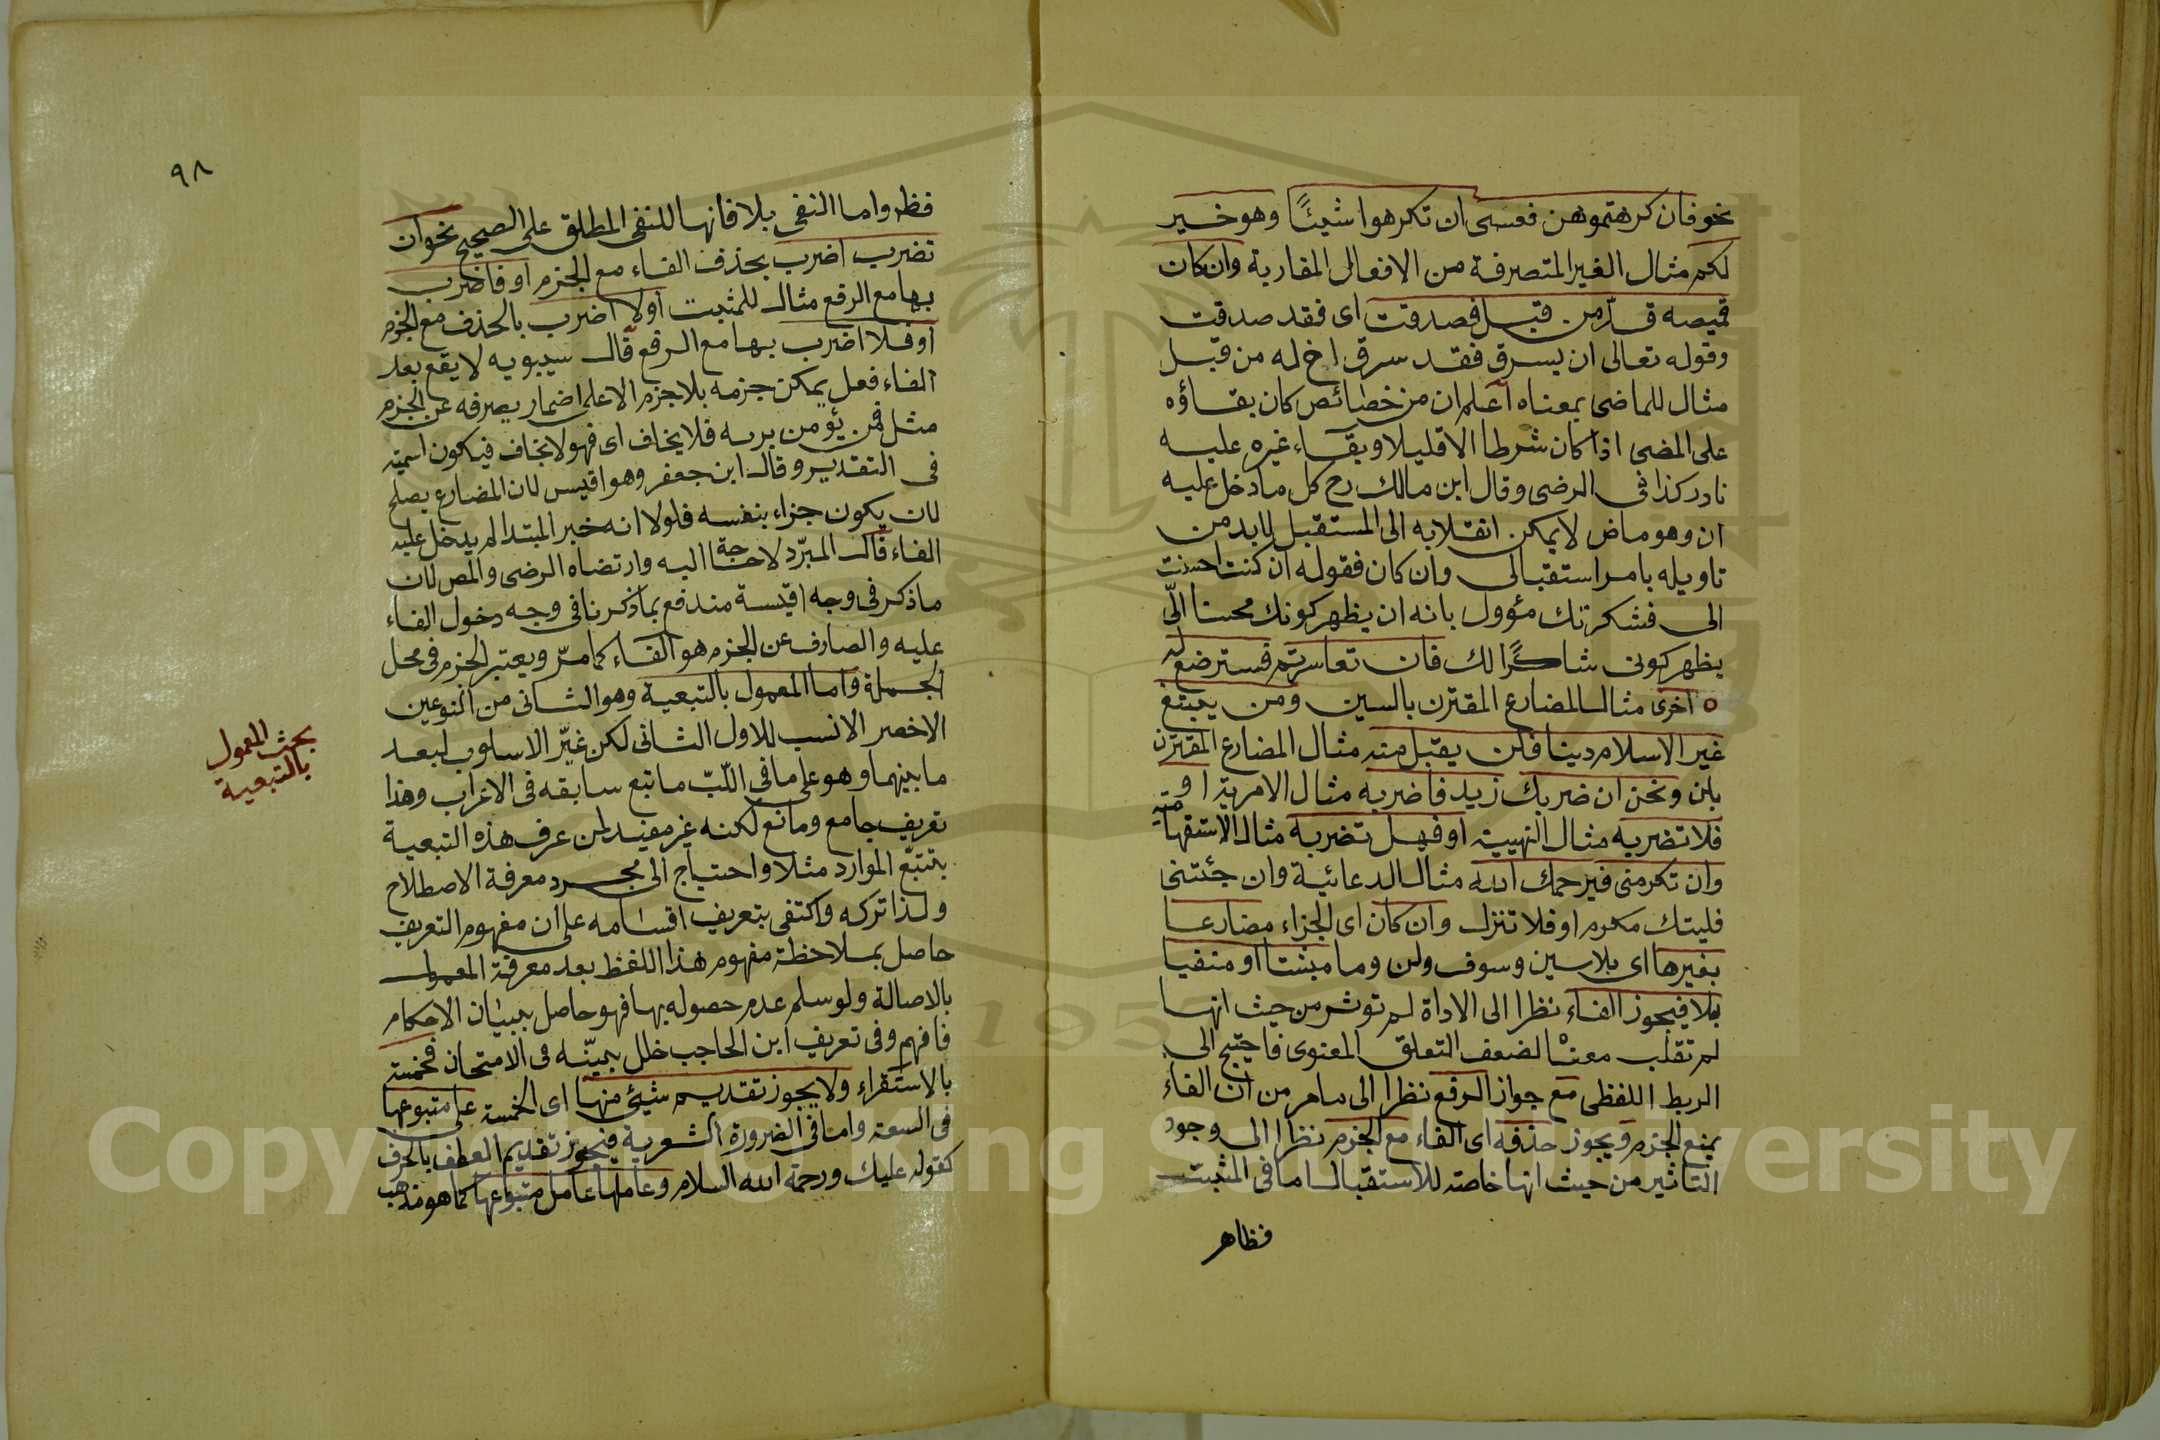 نحو فان كرهتموهن فعسى ان تكرهوا شيئًا وهو خير
لكم مثال الغير المتصرفة من الافعال المقاربة وان كان
قميصه قدّ من قبل فصدقت اى فقد صدقت
وقوله تعالى ان يسرق فقد سرق اخ له من قبل
مثال للماضى بمعناه اعلم ان من خصائص كان بقاؤه
على المضى اذا كان شرطا الا قليلا وبقاء غيره عليه
نادر كذا فى الرضى وقال ابن مالك رح كل ما دخل عليه
ان وهو ماض لا يمكن انقلابه الى المستقبل لابد من
تاويله بامر استقبالى وان كان فقوله ان كنت احسنت
الى فشكرتك مئوول بانه ان يظهر كونك محسنا الىّ
يظهر كونى شاكرًا لك فان تعاسرتم فسترضع له
اخرى مثال للمضارع المقترن بالسين ومن يبتغ
غير الاسلام دينا فلن يقبل منه مثال المضارع المقترن
بلن ونحن ان ضربك زيد فاضربه مثال الامرية او
فلا تضربه مثال النهيية او فهل تضربه مثال الاستفهامية
وان تكرمنى فيرحمك الله مثال الدعائية وان جئتنى
فليتك مكرم او فلا تنزل وان كان اى الجزاء مضارعا
بغيرها اى بلا سين وسوف ولن وما مثبتا او منفيا
بلا فيجوز الفاء نظرا الى الاداة لم توثر من حيث انها
لم تقلب معناه لضعف التعلق المعنوى فاحتيج الى
الربط اللفظى مع جواز الرفع نظرا الى ما مر من ان الفاء
يمنع الجزم ويجوز حذفه اى الفاء مع الجزم نظرا الى وجود
التاثير من حيث انها خاصة للاستقبال اما فى المثبت
فظاهر
٩٨
فظهر واما النفى بلا فانها للنفى المطلق على الصحيح نحو ان
تضرب اضرب بحذف الفاء مع الجزم او فاضرب
بها مع الرفع مثال للمثبت او لا اضرب بالحذف مع الجزم
او فلا اضرب بها مع الرفع قال سيبويه لا يقع بعد
الفاء فعل يمكن جزمه بلا جزم الا على اضمار يصرفه عن الجزم
مثل فمن يؤمن بربه فلا يخاف اى فهو لا يخاف فيكون اسمية
فى التقدير وقال ابن جعفر وهو اقيس لان المضارع يصلح
لان يكون جزاء بنفسه فلولا انه خبر المبتدا لم يدخل عليه
الفاء قال المبرّد لا حاجة اليه وارتضاه الرضى والمص لان
ما ذكر فى وجه اقيسة مندفع بما ذكرنا فى وجه دخول الفاء
عليه والصارف عن الجزم هو الفاء كما مرّ ويعتبر الجزم فى محل
الجملة واما المعمول بالتبعية وهو الثانى من النوعين
الاخصر الانسب للاول الثانى لكن غيّر الاسلوب لبعد
ما بينهما وهو على ما فى اللّبّ ما تبع سابقه فى الاعراب وهذا
تعريف جامع ومانع لكنه غير مفيد لمن عرف هذه التبعية
بتتبّع الموارد مثلا واحتياج الى مجرد معرفة الاصطلاح
ولذا تركه واكتفى بتعريف اقسامه على ان مفهوم التعريف
حاصل بملاحظة مفهوم هذا اللفظ بعد معرفة المعمول
بالاصالة ولو سلم عدم حصوله بها فهو حاصل ببيان الاحكام
فافهم وفى تعريف ابن الحاجب خلل بميّنه فى الامتحان فخمسة
بالاستقراء ولا يجوز تقديم شيئ منها اى الخمسة على متبوعها
فى السعة واما فى الضرورة الشعرية فيجوز تقديم العطف بالحرف
كقوله عليك ورحمة الله السلام وعاملها عامل متبوعها كما هو مذهب
بحث المعمول
بالتبعية
Copyright © King Saud University
1957